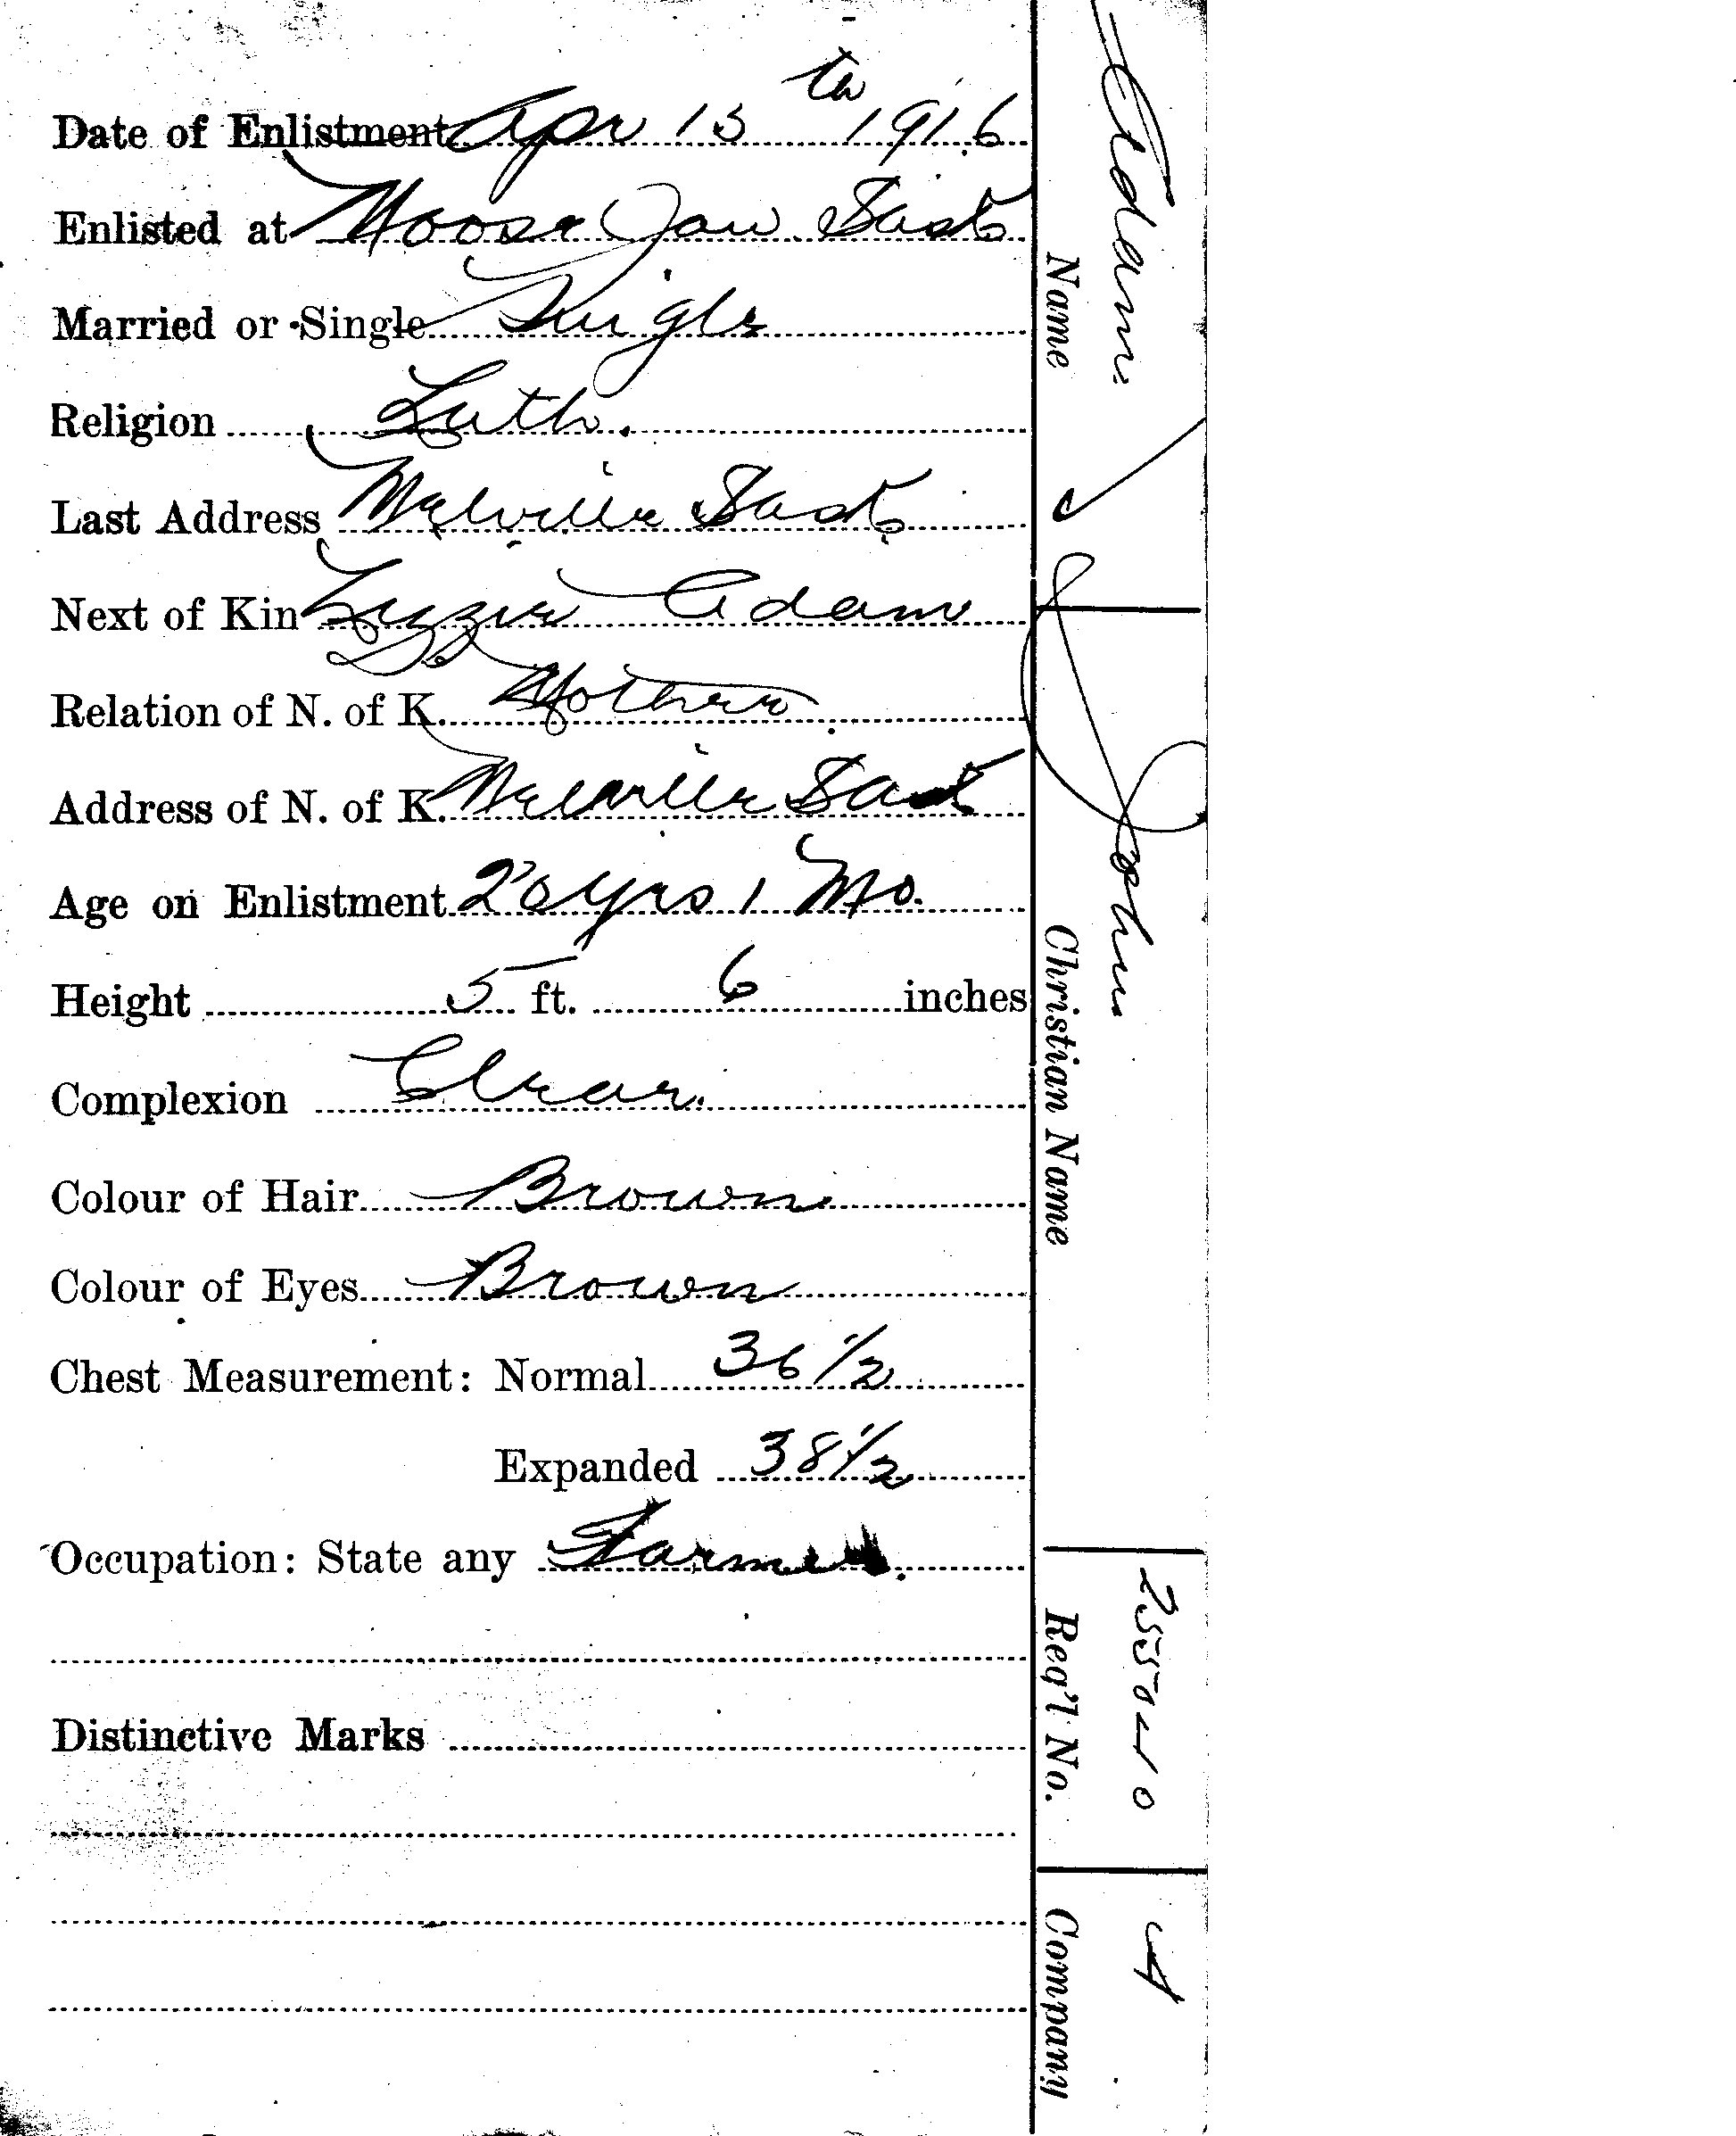 Date of Enlistment Apr 13th 1916
Enlisted at Moose Jaw Sask
Married or Single Single
Religion Luth.
Last Address Melville Sask
Next of Kin Lizzie Adam
Relation of N. of K. Mother
Address of N. of K. Melville Sask
Age on Enlistment 20 yrs 1 Mo.
Height 5 ft. 6 inches
Complexion Clear.
Colour of Hair Brown
Colour of Eyes Brown
Chest Measurement: Normal 36 1/2
Expanded 38 1/2
Occupation: State any Farmer.
Distinctive Marks
Adam
Name
John
Christian Name
Reg'l No.
A
Company